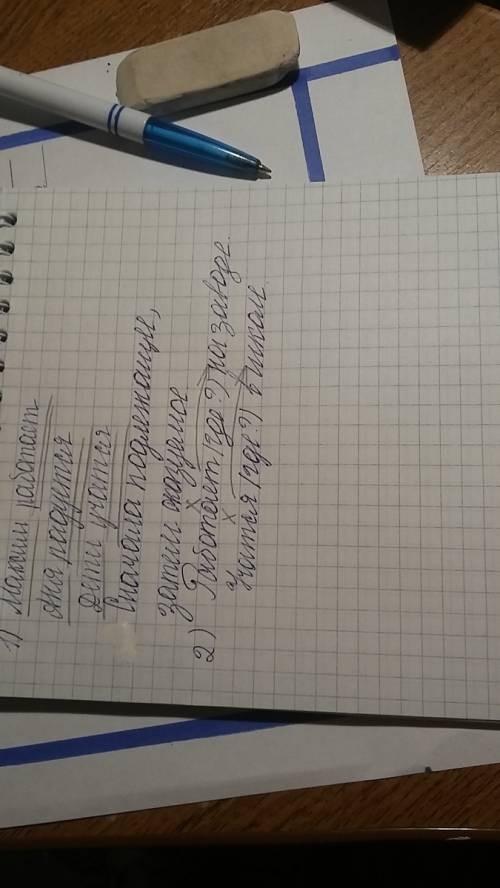 1) Максим работает
Аня радуется
Дети учатся
Сначала подлежащее,
затем сказуемое
2) Работает (где?) на заводе.
Учатся (где?) в школе.